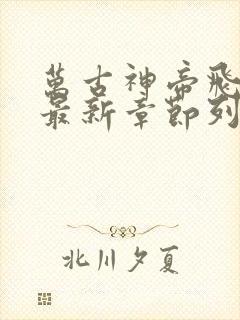 萬古神帝飛
最新章節列
北川夕夏